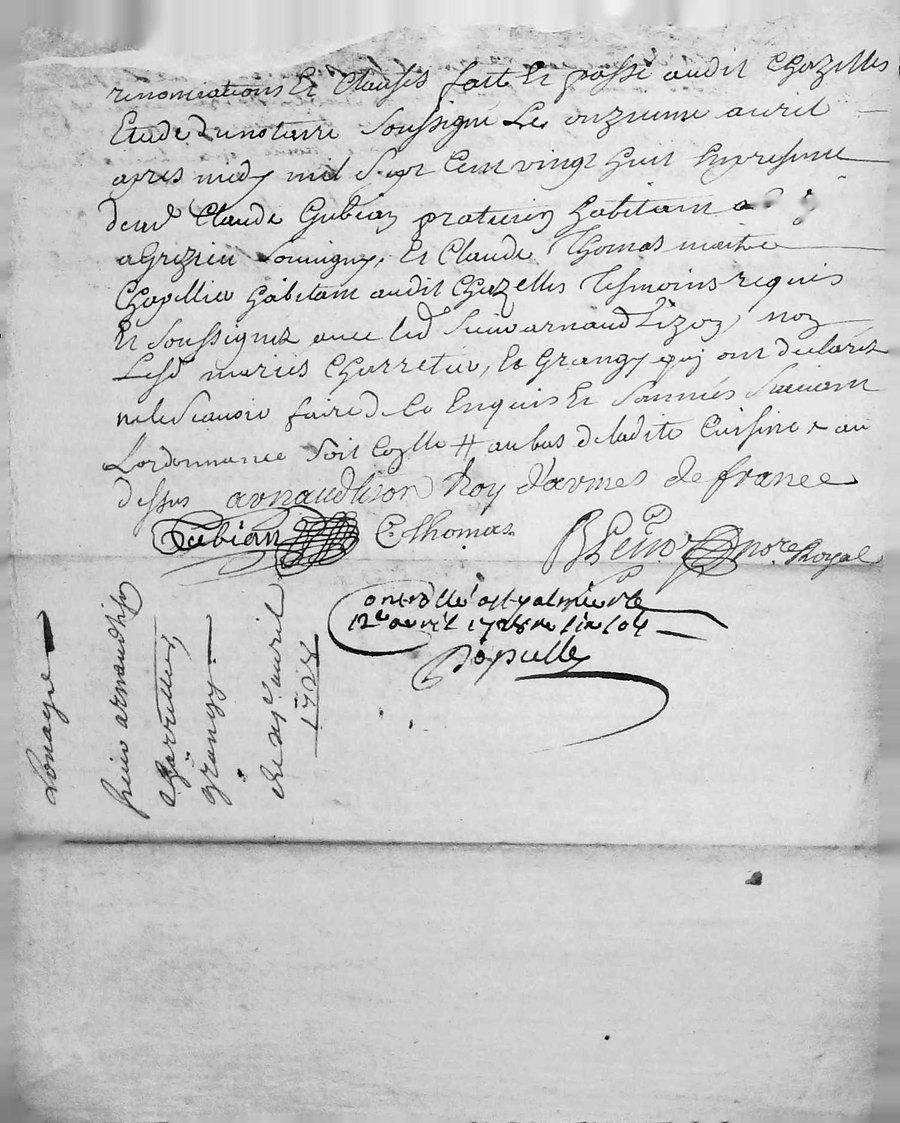 renonciations Et Clauses fait Et passé audit Chazelles
Etude du notaire soussigné Le onzieme avril
apres midy mil sept Cent vingt huit En presence
de me Claude Gubian praticien habitant a
a Grizieu Souvigny, Et Claude Thomas maitre
Chapellier habitant audit Chazelles Tesmoins requis
Et soussignez avec led Sieur arnaud Lizon, non
Lesd mariés Charretier, Et Grangy qui ont declarez
ne le scavoir faire de Ce Enquis Et sommés suivant
L'ordonnance soit Colle # au bas de ladite Cuisine & au
dessus arnaud lison Roy d'armes de france
Gubian C. Thomas.
nore Royal
Controllé a St galmier le
12e avril 1728
Populle
Louage
sieur arnaud lison
grangy
du 11e avril
1728